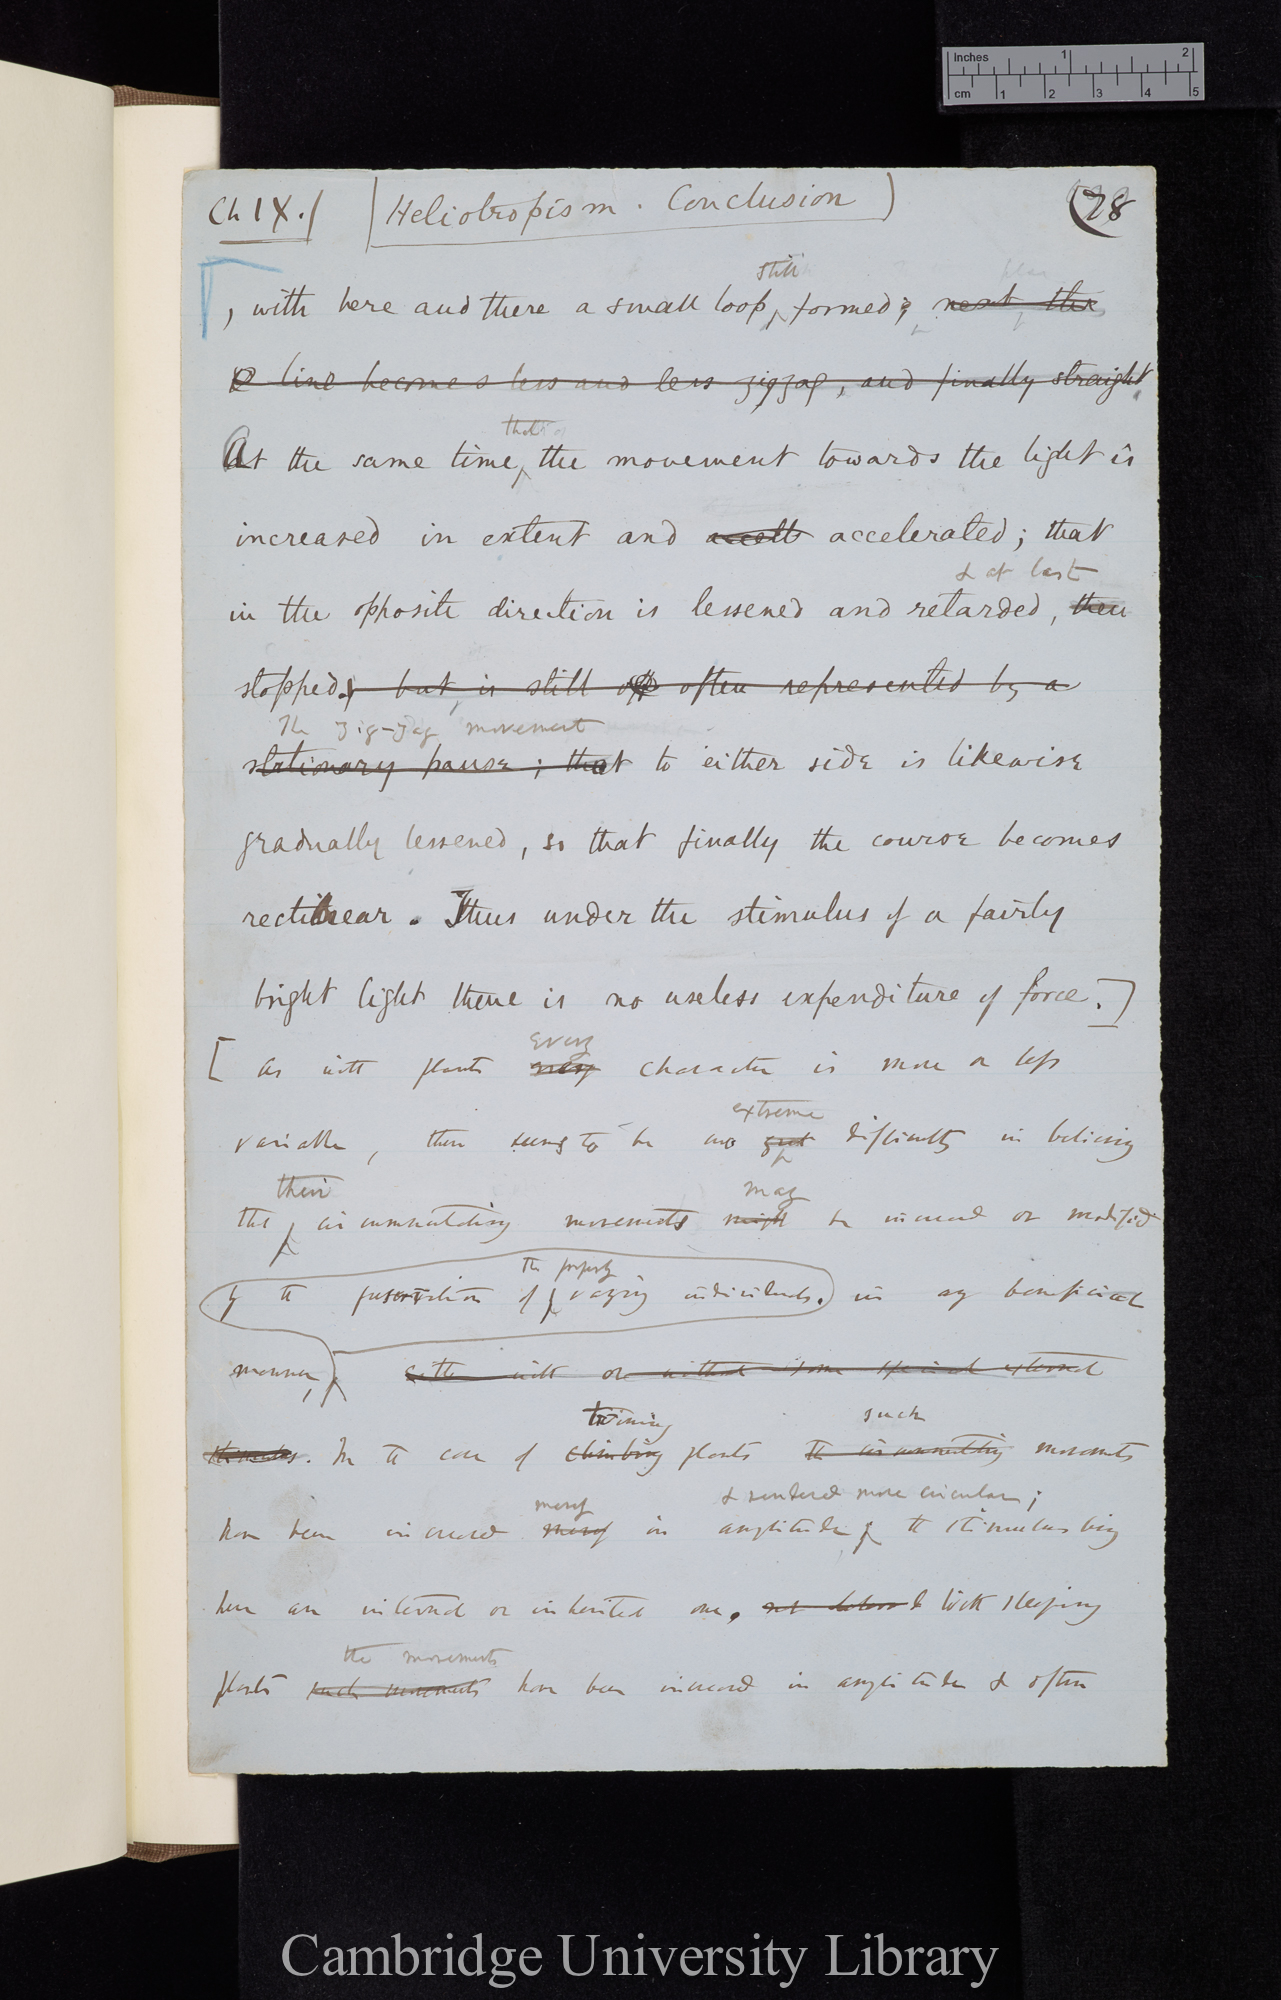 inches 1 2
cm 1 2 3 4 5
Ch IX. Heliotropism. Conclusion 28
still
, with here and there a small loop, formed; next, the
e line becomes less and less zigzag, and finally straight
that
At the same time, the movement towards the light is
increased in extent and accelerated; that
& at last
in the opposite direction is lessened and retarded, then
stopped, but is still often represented by a
The zig-zag movement
stationary pause; that to either side is likewise
gradually lessened, so that finally the course becomes
rectilinear. Thus under the stimulus of a fairly
bright light there is no useless expenditure of force.]
every
[As with plants every character is more or less
extreme
variable, there seems to be no great difficulty in believing
their may
that circumnutating movements might be increased or modified
the property
by the preservation of varying individuals. in any beneficial
manner, either with or without some special external
twining such
stimulus. In the case of climbing plants the circumnutating movements
merely & rendered more circular;
have been increased merely in amplitude, the stimulus being
here an internal or inherited one, With sleeping
the movements
plants such movements have been increased in amplitude & often
Cambridge University Library